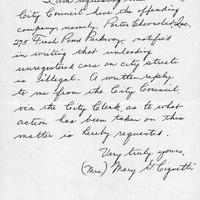 I am requesting
City Council have the offending
company, namely Porter Chevrolet Inc.
275 Fresh Pond Parkway, notified
in writing that unloading
unregistered cars on city streets
is illegal. A written reply
to me from the City Council,
via the City Clerk, as to what
action has been taken on this
matter is hereby requested.
Very truly yours,
(Mrs) Mary G.